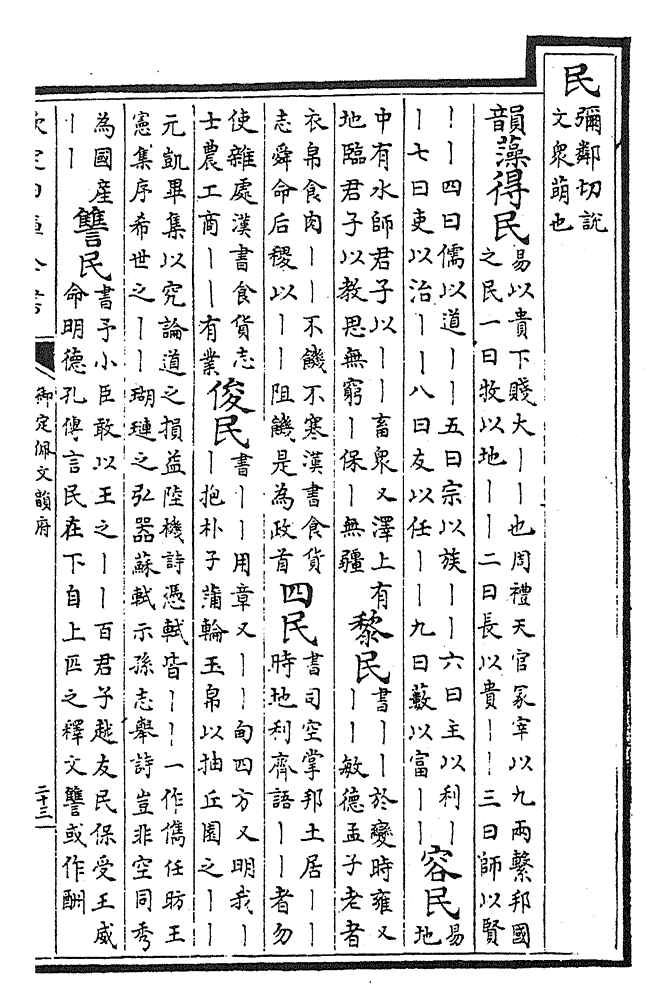 民
彌鄰切說
文衆萌也
韻藻得民
易以貴下賤大丨丨也周禮天官冢宰以九兩繫邦國
之民一曰牧以地丨丨二曰長以貴丨丨三曰師以賢
丨丨四曰儒以道丨丨五曰宗以族丨丨六曰主以利丨
丨七曰吏以治丨丨八曰友以任丨丨九曰藪以富丨丨
容民
易
地
中有水師君子以丨丨畜衆又澤上有
地臨君子以教思無窮丨保丨無疆
黎民
書丨丨於變時雍又
丨丨敏德孟子老者
衣帛食肉丨丨不饑不寒漢書食貨
志舜命后稷以丨丨阻饑是為政首
四民
書司空掌邦土居丨丨
時地利齊語丨丨者勿
使雜處漢書食貨志
士農工商丨丨有業
俊民
書丨丨用章又丨丨甸四方又明我丨
丨抱朴子蒲輪玉帛以抽丘園之丨丨
元凱畢集以究論道之損益陸機詩憑軾皆丨丨一作儁任昉王
憲集序希世之丨丨瑚璉之弘器蘇軾示孫志舉詩豈非空同秀
為國產
丨丨
讐民
書予小臣敢以王之丨丨百君子越友民保受王威
命明德孔傳言民在下自上匹之釋文讐或作酬
御定佩文韻府
二十三